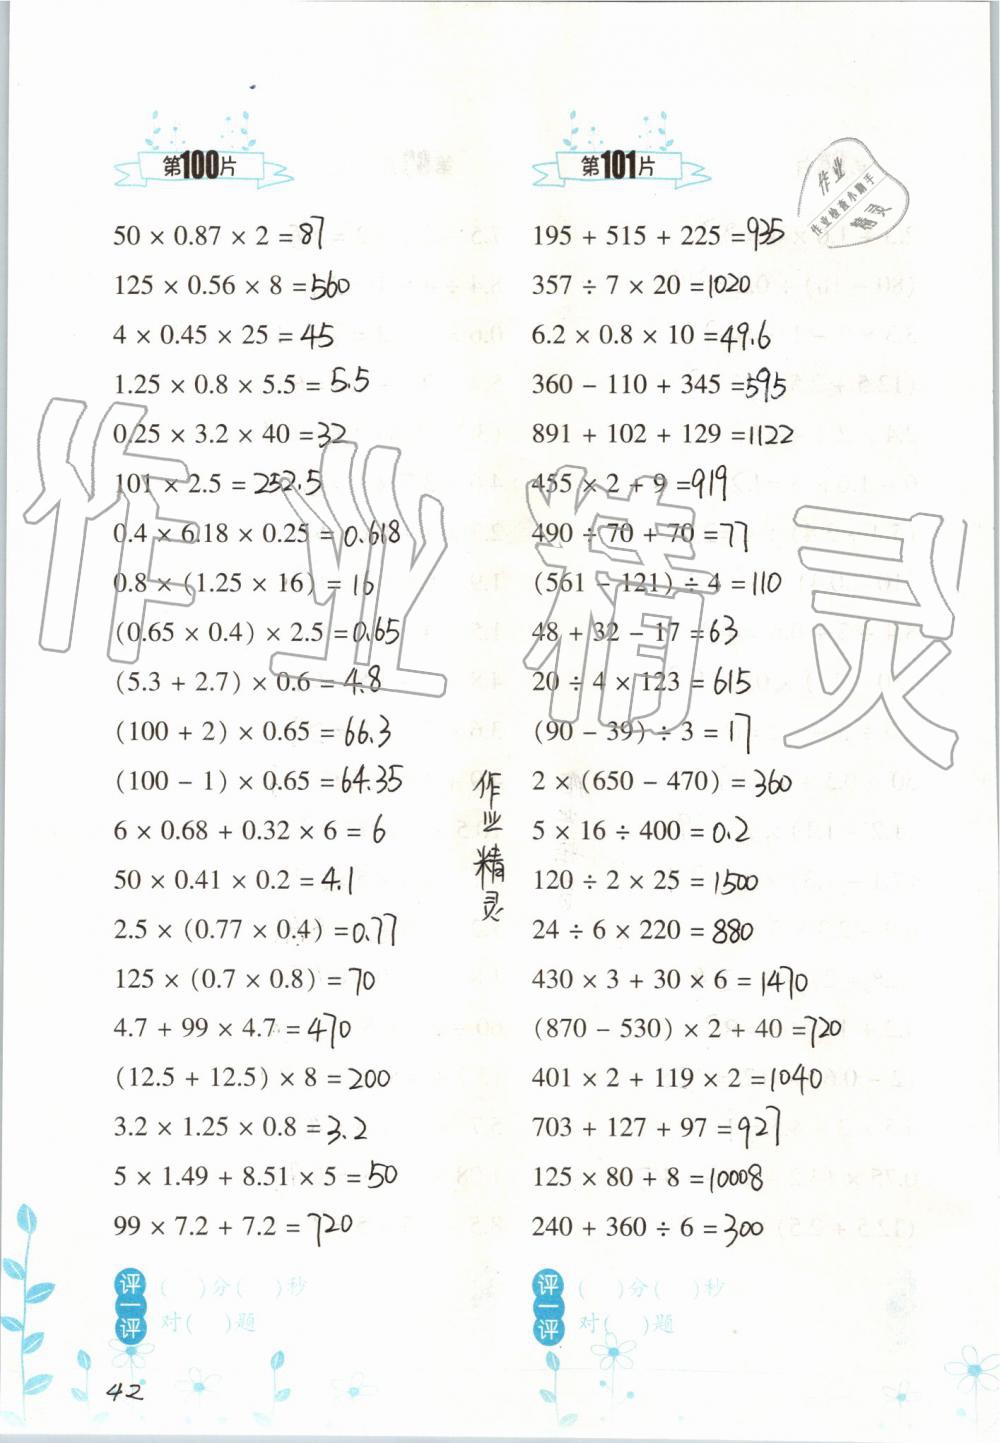 第100片
50 × 0.87 × 2 = 87
125 × 0.56 × 8 = 560
4 × 0.45 × 25 = 45
1.25 × 0.8 × 5.5 = 5.5
0.25 × 3.2 × 40 = 32
101 × 2.5 = 252.5
0.4 × 6.18 × 0.25 = 0.618
0.8 × (1.25 × 16) = 16
(0.65 × 0.4) × 2.5 = 0.65
(5.3 + 2.7) × 0.6 = 4.8
(100 + 2) × 0.65 = 66.3
(100 - 1) × 0.65 = 64.35
6 × 0.68 + 0.32 × 6 = 6
50 × 0.41 × 0.2 = 4.1
2.5 × (0.77 × 0.4) = 0.77
125 × (0.7 × 0.8) = 70
4.7 + 99 × 4.7 = 470
(12.5 + 12.5) × 8 = 200
3.2 × 1.25 × 0.8 = 3.2
5 × 1.49 + 8.51 × 5 = 50
99 × 7.2 + 7.2 = 720
评一评
( )分( )秒
对( )题
42
作业精灵
第101片
195 + 515 + 225 = 935
357 ÷ 7 × 20 = 1020
6.2 × 0.8 × 10 = 49.6
360 - 110 + 345 = 595
891 + 102 + 129 = 1122
455 × 2 + 9 = 919
490 ÷ 70 + 70 = 77
(561 - 121) ÷ 4 = 110
48 + 32 - 17 = 63
20 ÷ 4 × 123 = 615
(90 - 39) ÷ 3 = 17
2 × (650 - 470) = 360
5 × 16 ÷ 400 = 0.2
120 ÷ 2 × 25 = 1500
24 ÷ 6 × 220 = 880
430 × 3 + 30 × 6 = 1470
(870 - 530) × 2 + 40 = 720
401 × 2 + 119 × 2 = 1040
703 + 127 + 97 = 927
125 × 80 + 8 = 10008
240 + 360 ÷ 6 = 300
评一评
( )分( )秒
对( )题
作业
作业检查小助手
精灵
作业精灵